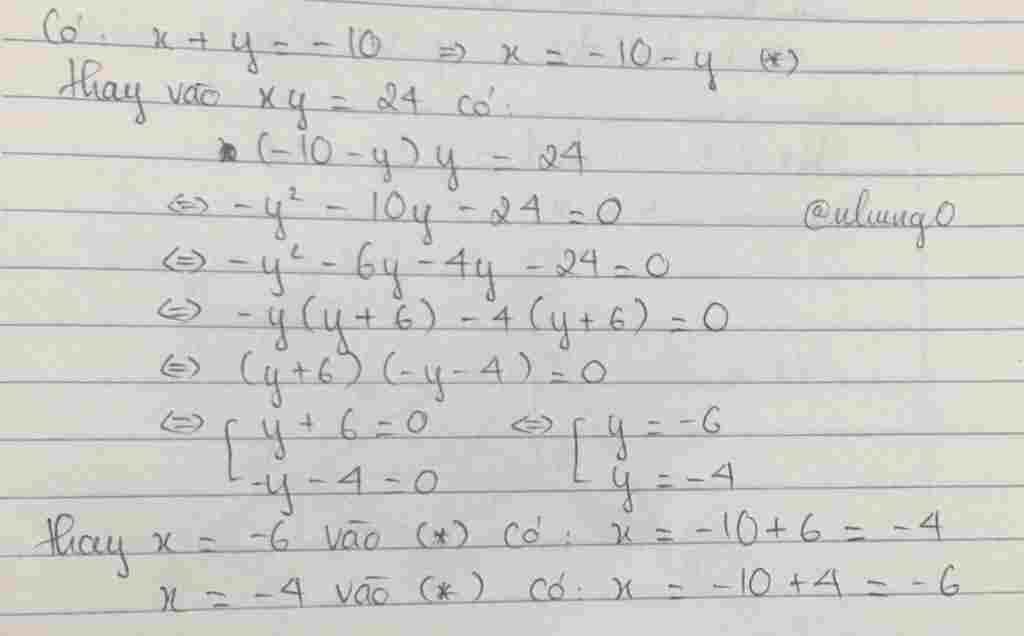 Có: x + y = -10 => x = -10 - y (*)
thay vào xy = 24 có:
(-10 - y) y = 24
<=> -y² - 10y - 24 = 0
@nhung0
<=> -y² - 6y - 4y - 24 = 0
<=> -y (y + 6) - 4 (y + 6) = 0
<=> (y + 6) (-y - 4) = 0
<=> [ y + 6 = 0 <=> [ y = -6
-y - 4 = 0 y = -4
thay x = -6 vào (*) có: x = -10 + 6 = -4
x = -4 vào (*) có: x = -10 + 4 = -6